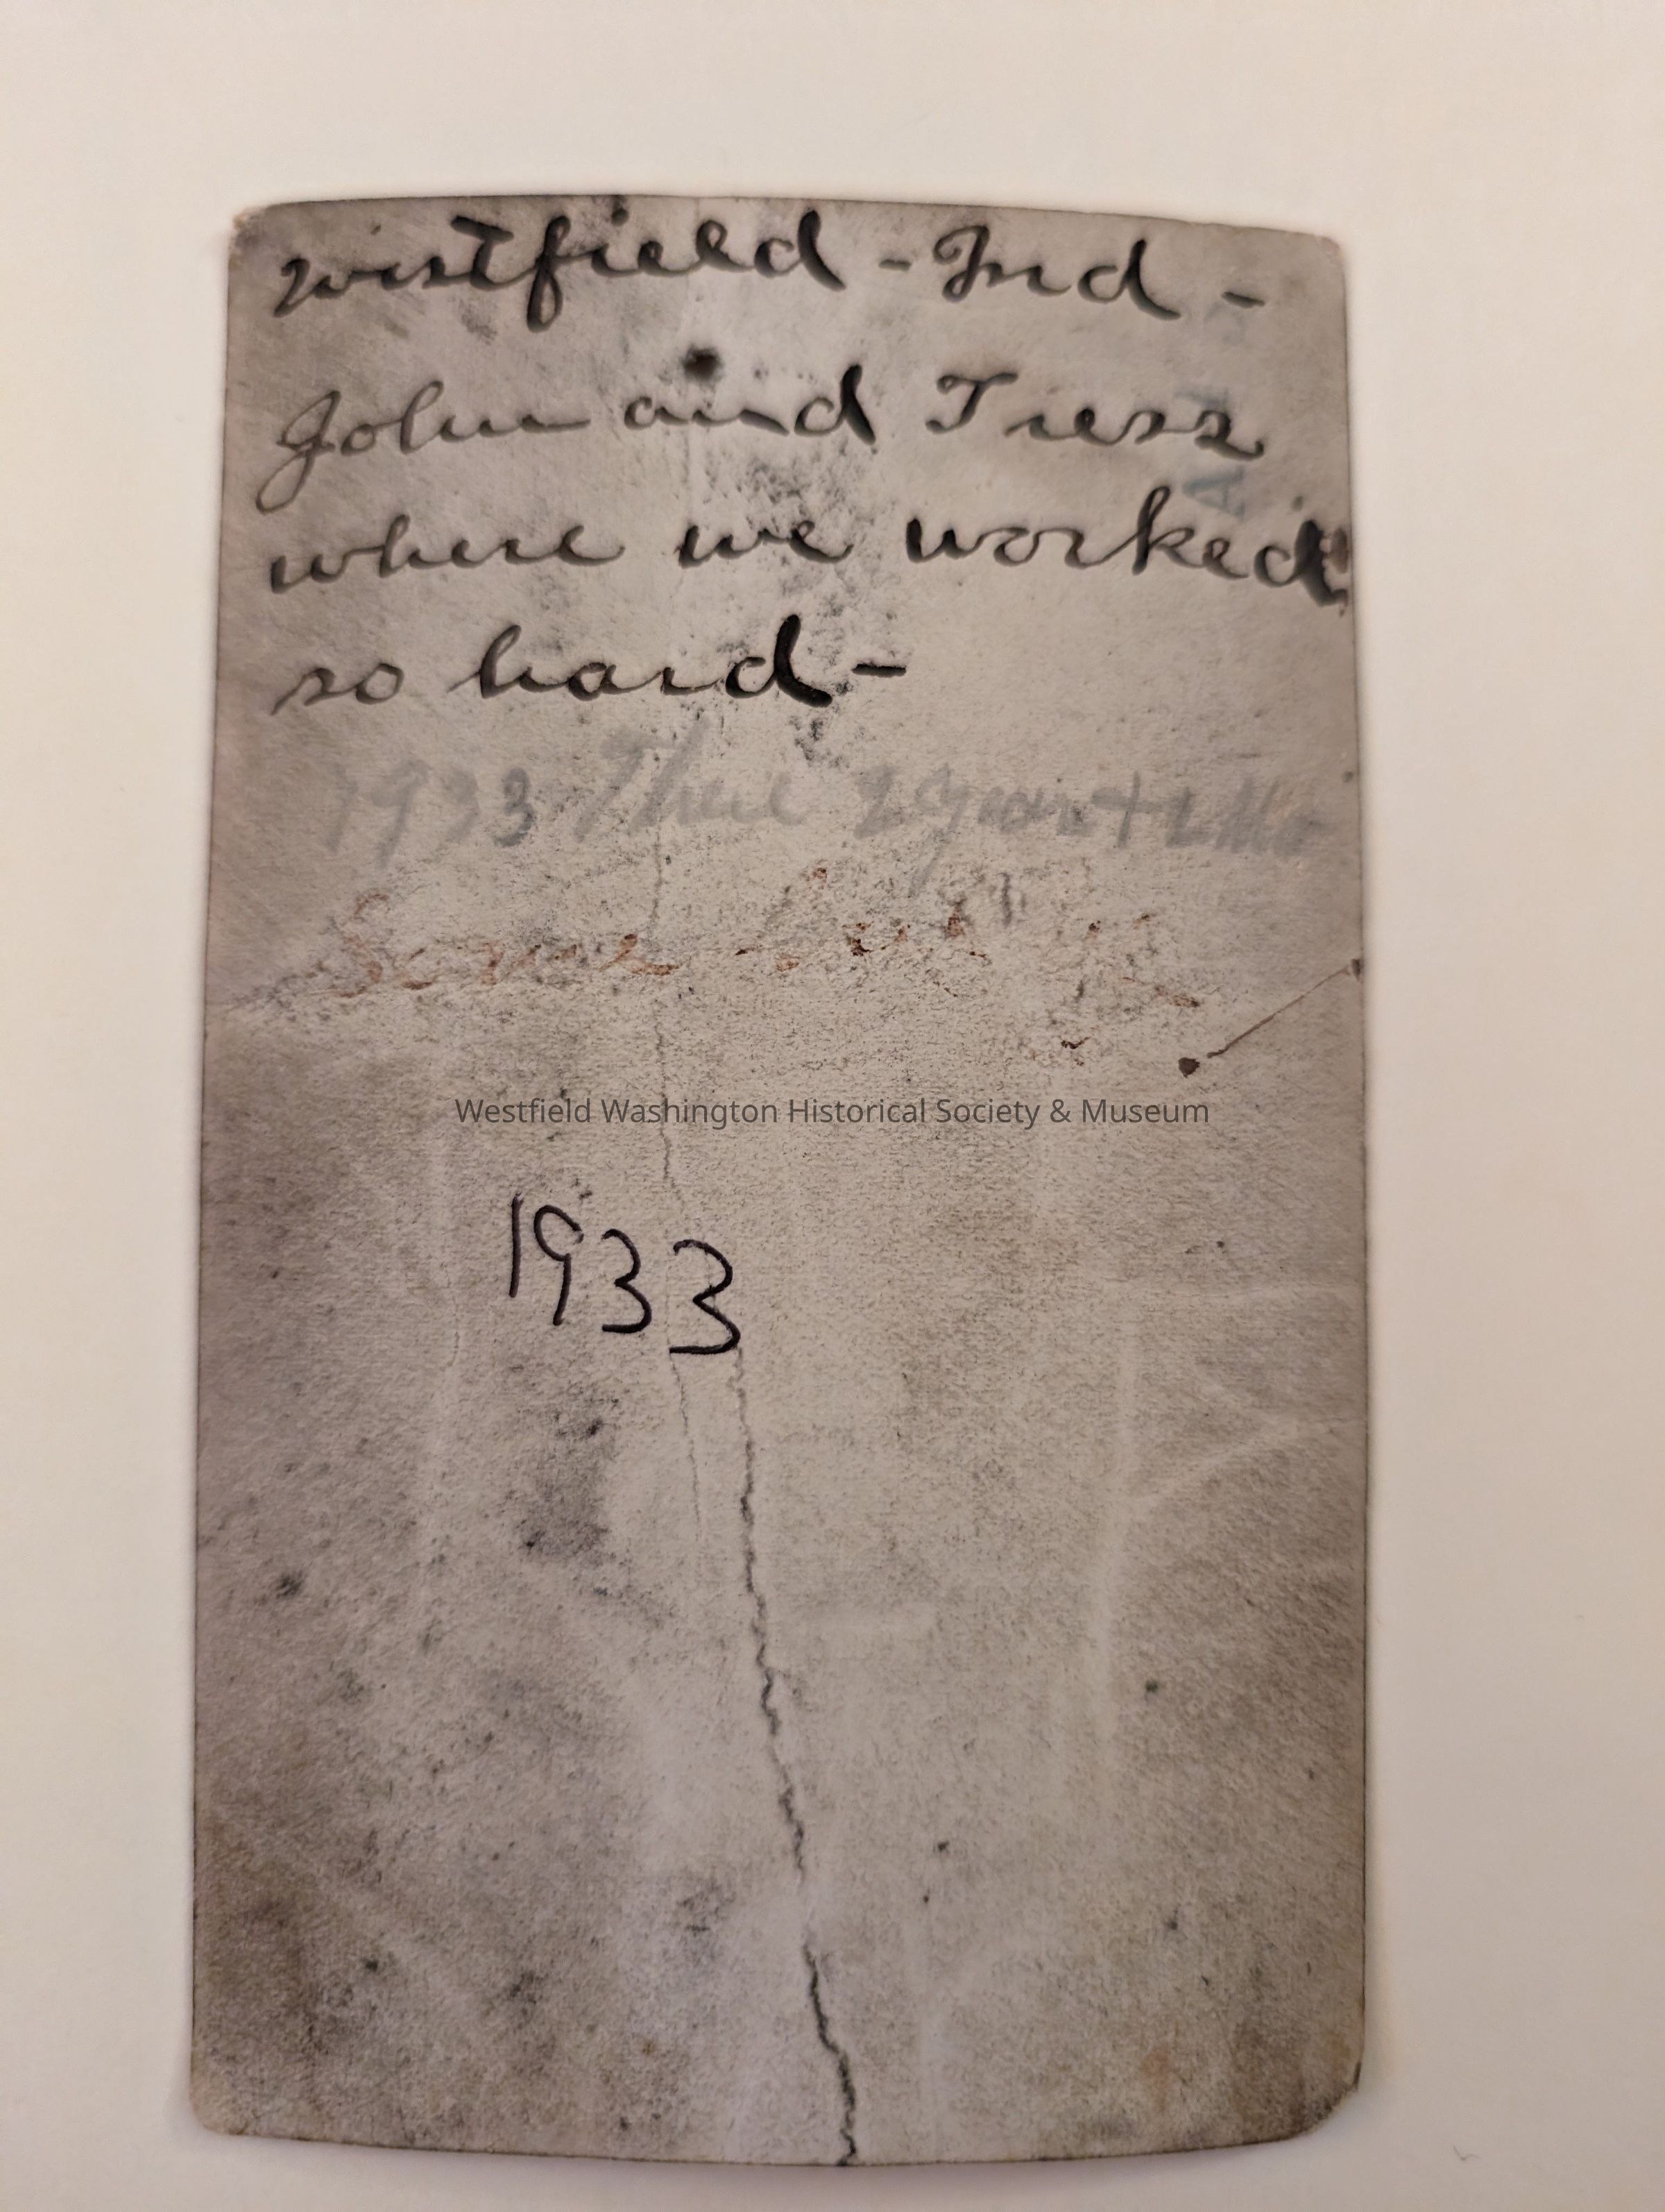 Westfield - Ind -
John and Tress
where we worked
so hard -
1933 There 2 years +
Some
Westfield Washington Historical Society & Museum
1933